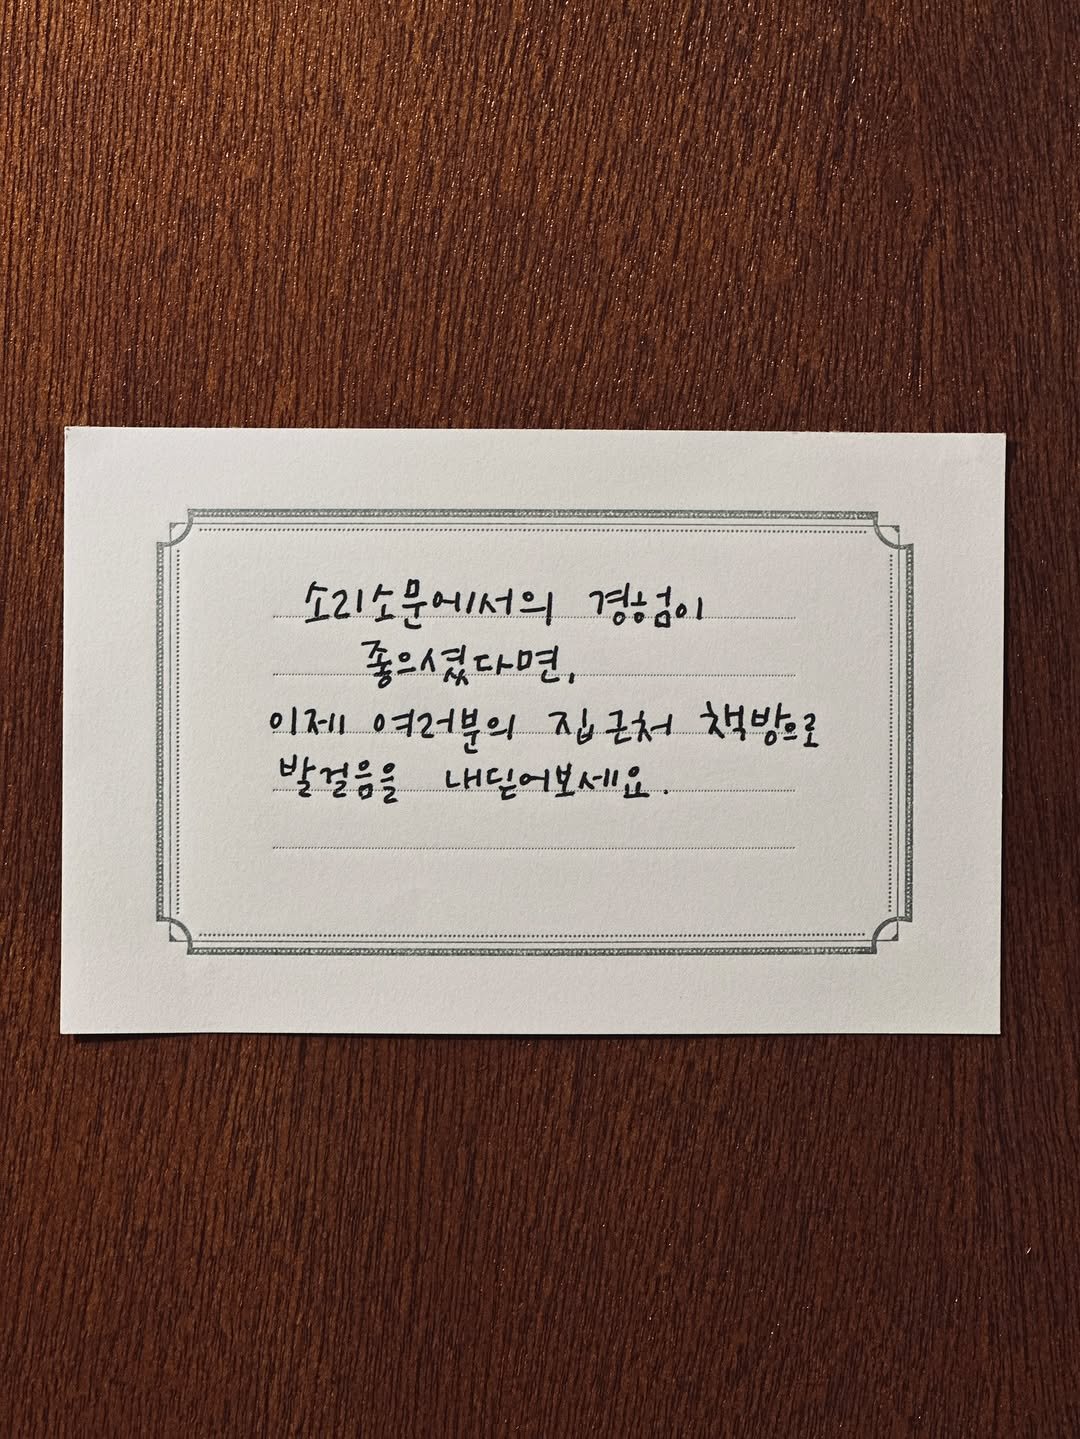 소리소문에서의 경험이
좋으셨다면,
이제 여러분의 집 근처 책방으로
발걸음을 내딛어보세요.